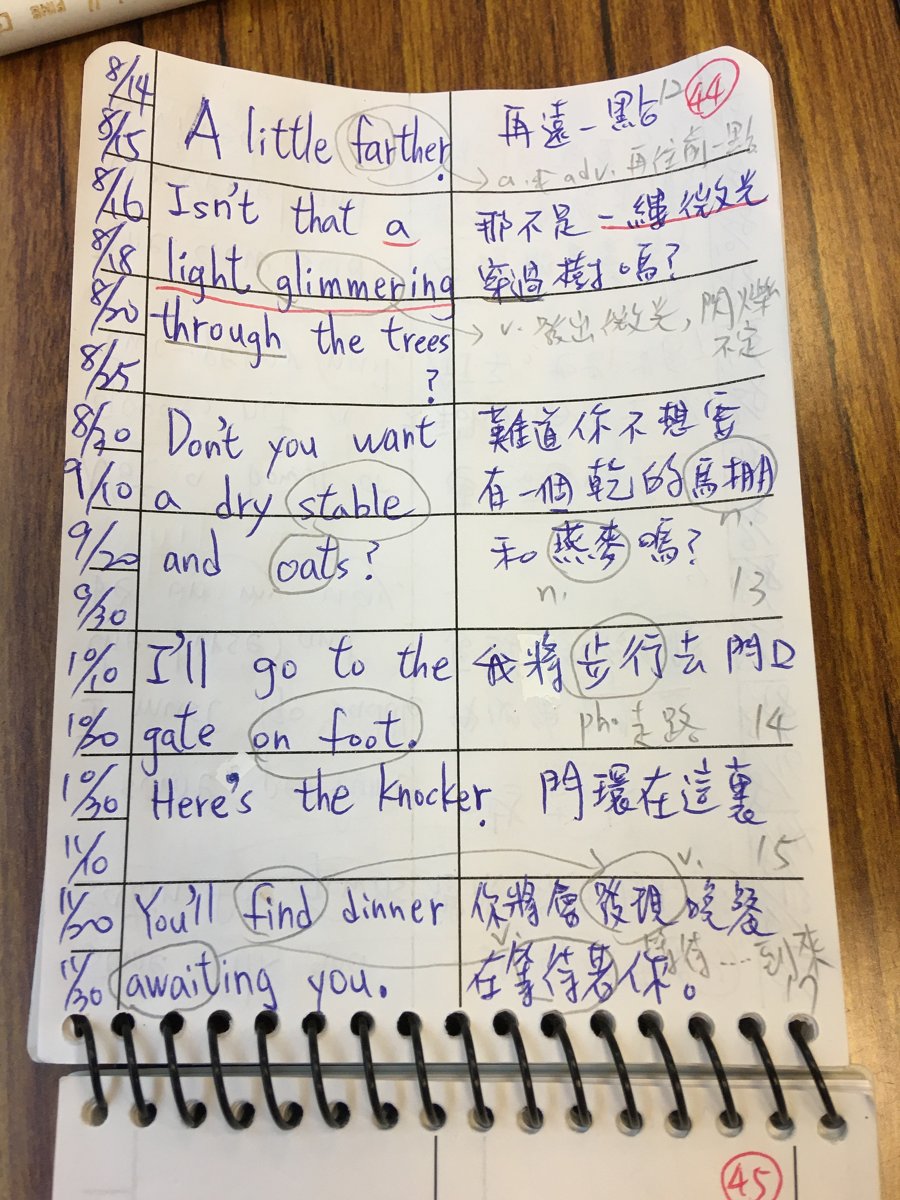 FINE
8/14
A little farther.
再遠一點 12
44
8/15
→ a. or adv. 再往前一點
8/16
Isn't that a
那不是一縷微光
8/18
light glimmering
穿過樹嗎?
8/20
through the trees
→ v. 發出微光, 閃爍
不定
8/25
?
8/20
Don't you want
難道你不想要
9/10
a dry stable
在一個乾的馬棚
n.
9/20
and oats?
和燕麥嗎?
n.
13
9/30
10/10
I'll go to the
我將步行去門口
10/20
gate on foot.
ph. 走路
14
10/30
Here's the knocker.
門環在這裏
11/10
15
11/20
You'll find dinner
你將會發現晚餐
v.
11/30
awaiting you.
在等待著你。
v.
等待...到來
17
45